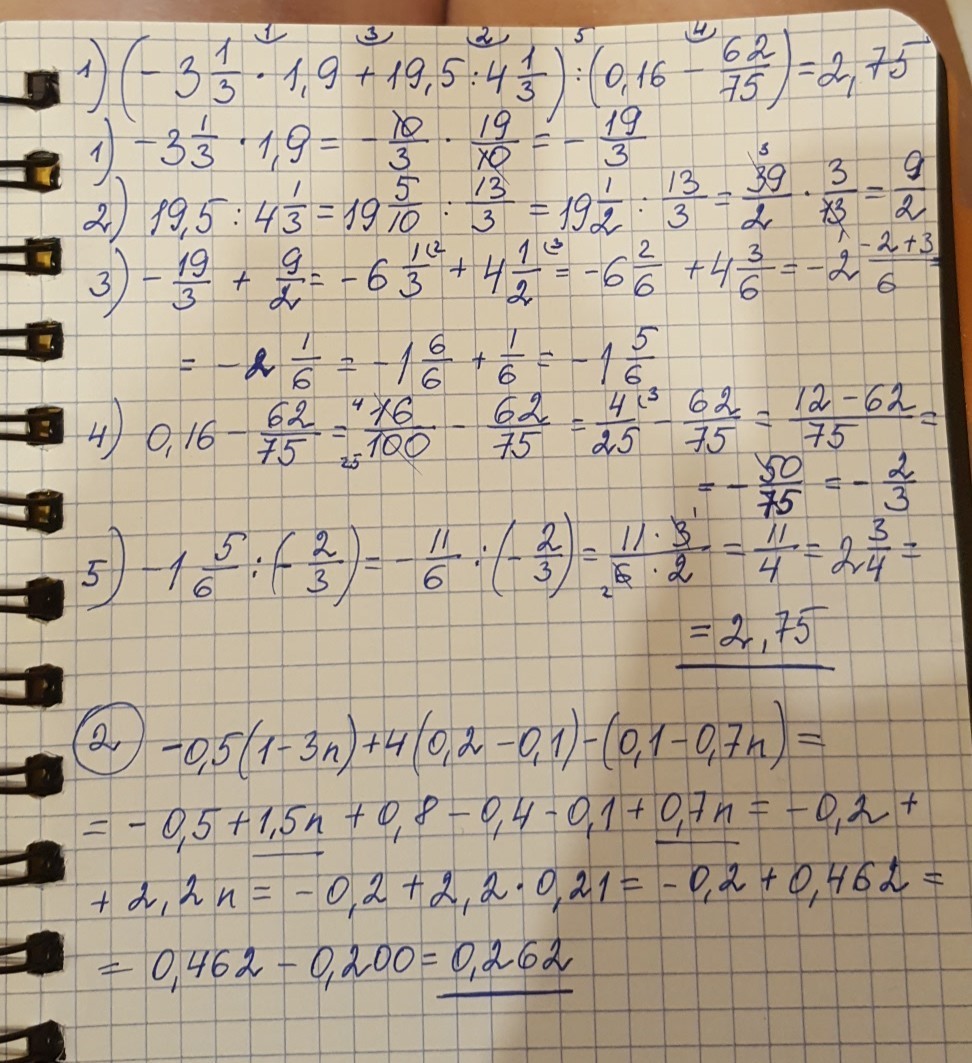 1) (-3 1/3 · 1,9 + 19,5 : 4 1/3) : (0,16 - 62/75) = 2,75
1) -3 1/3 · 1,9 = - 10/3 · 19/10 = - 19/3
2) 19,5 : 4 1/3 = 19 5/10 : 13/3 = 19 1/2 : 13/3 = 39/2 · 3/13 = 9/2
3) - 19/3 + 9/2 = -6 1/3 + 4 1/2 = -6 2/6 + 4 3/6 = -2 (-2+3)/6 =
= -2 1/6 = -1 6/6 + 1/6 = -1 5/6
4) 0,16 - 62/75 = 16/100 - 62/75 = 4/25 - 62/75 = (12-62)/75 =
= - 50/75 = - 2/3
5) -1 5/6 : (- 2/3) = - 11/6 : (- 2/3) = (11·3)/(6·2) = 11/4 = 2 3/4 =
= 2,75
2 -0,5(1-3n)+4(0,2-0,1)-(0,1-0,7n)=
= -0,5+1,5n+0,8-0,4-0,1+0,7n = -0,2+
+2,2n = -0,2+2,2·0,21 = -0,2+0,462=
= 0,462-0,200=0,262